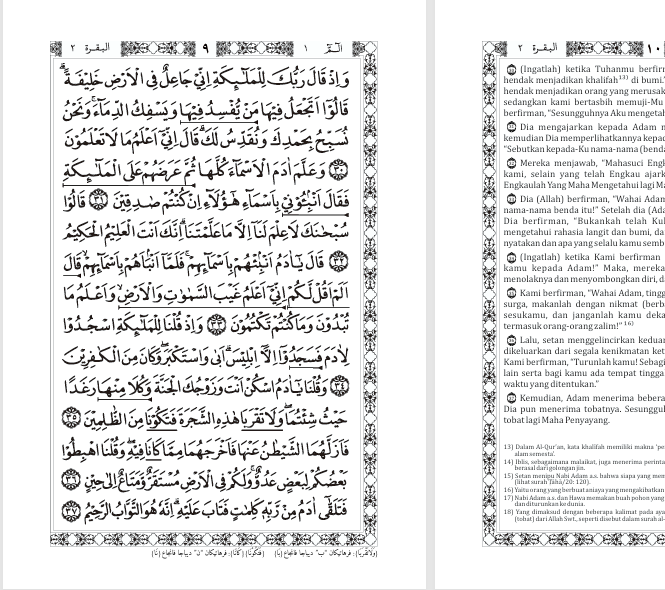 الۤمّۤ ١
٩
البقرة ٢
وَاِذْ قَالَ رَبُّكَ لِلْمَلٰۤىِٕكَةِ اِنِّيْ جَاعِلٌ فِى الْاَرْضِ خَلِيْفَةً ۗ
قَالُوْٓا اَتَجْعَلُ فِيْهَا مَنْ يُّفْسِدُ فِيْهَا وَيَسْفِكُ الدِّمَاۤءَۚ وَنَحْنُ
نُسَبِّحُ بِحَمْدِكَ وَنُقَدِّسُ لَكَ ۗ قَالَ اِنِّيْٓ اَعْلَمُ مَا لَا تَعْلَمُوْنَ
٣٠ وَعَلَّمَ اٰدَمَ الْاَسْمَاۤءَ كُلَّهَا ثُمَّ عَرَضَهُمْ عَلَى الْمَلٰۤىِٕكَةِ
فَقَالَ اَنْۢبِـُٔوْنِيْ بِاَسْمَاۤءِ هٰٓؤُلَاۤءِ اِنْ كُنْتُمْ صٰدِقِيْنَ ٣١ قَالُوْا
سُبْحٰنَكَ لَا عِلْمَ لَنَآ اِلَّا مَا عَلَّمْتَنَا ۗاِنَّكَ اَنْتَ الْعَلِيْمُ الْحَكِيْمُ
٣٢ قَالَ يٰٓاٰدَمُ اَنْۢبِئْهُمْ بِاَسْمَاۤىِٕهِمْ ۚ فَلَمَّآ اَنْۢبَاَهُمْ بِاَسْمَاۤىِٕهِمْۙ قَالَ
اَلَمْ اَقُلْ لَّكُمْ اِنِّيْٓ اَعْلَمُ غَيْبَ السَّمٰوٰتِ وَالْاَرْضِۙ وَاَعْلَمُ مَا
تُبْدُوْنَ وَمَا كُنْتُمْ تَكْتُمُوْنَ ٣٣ وَاِذْ قُلْنَا لِلْمَلٰۤىِٕكَةِ اسْجُدُوْا
لِاٰدَمَ فَسَجَدُوْٓا اِلَّآ اِبْلِيْسَۗ اَبٰى وَاسْتَكْبَرَۖ وَكَانَ مِنَ الْكٰفِرِيْنَ
٣٤ وَقُلْنَا يٰٓاٰدَمُ اسْكُنْ اَنْتَ وَزَوْجُكَ الْجَنَّةَ وَكُلَا مِنْهَا رَغَدًا
حَيْثُ شِئْتُمَاۖ وَلَا تَقْرَبَا هٰذِهِ الشَّجَرَةَ فَتَكُوْنَا مِنَ الظّٰلِمِيْنَ ٣٥
فَاَزَلَّهُمَا الشَّيْطٰنُ عَنْهَا فَاَخْرَجَهُمَا مِمَّا كَانَا فِيْهِ ۖ وَقُلْنَا اهْبِطُوْا
بَعْضُكُمْ لِبَعْضٍ عَدُوٌّ ۚ وَلَكُمْ فِى الْاَرْضِ مُسْتَقَرٌّ وَّمَتَاعٌ اِلٰى حِيْنٍ ٣٦
فَتَلَقّٰٓى اٰدَمُ مِنْ رَّبِّهٖ كَلِمٰتٍ فَتَابَ عَلَيْهِ ۗ اِنَّهٗ هُوَ التَّوَّابُ الرَّحِيْمُ ٣٧
١٠
البقرة ٢
(Ingatlah) ketika Tuhanmu berfirm
hendak menjadikan khalifah13) di bumi."
hendak menjadikan orang yang merusak
sedangkan kami bertasbih memuji-Mu
berfirman, "Sesungguhnya Aku mengetah
Dia mengajarkan kepada Adam n
kemudian Dia memperlihatkannya kepac
"Sebutkan kepada-Ku nama-nama (benda
Mereka menjawab, "Mahasuci Engk
kami, selain yang telah Engkau ajark
Engkaulah Yang Maha Mengetahui lagi Ma
Dia (Allah) berfirman, "Wahai Adam
nama-nama benda itu!" Setelah dia (Ada
Dia berfirman, "Bukankah telah Kul
mengetahui rahasia langit dan bumi, da
nyatakan dan apa yang selalu kamu semb
(Ingatlah) ketika Kami berfirman
kamu kepada Adam!" Maka, mereka
menolaknya dan menyombongkan diri, da
Kami berfirman, "Wahai Adam, tingg
surga, makanlah dengan nikmat (berb
sesukamu, dan janganlah kamu deka
termasuk orang-orang zalim!" 16)
Lalu, setan menggelincirkan kedua
dikeluarkan dari segala kenikmatan ket
Kami berfirman, "Turunlah kamu! Sebagi
lain serta bagi kamu ada tempat tingga
waktu yang ditentukan."
Kemudian, Adam menerima bebera
Dia pun menerima tobatnya. Sesunggul
tobat lagi Maha Penyayang.
13) Dalam Al-Qur'an, kata khalifah memiliki makna 'pe
alam semesta'.
14) Iblis, sebagaimana malaikat, juga menerima perinta
berasal dari golongan jin.
15) Setan menipu Nabi Adam a.s. bahwa siapa yang men
(lihat surah Ṭāhā/20: 120).
16) Yaitu orang yang berbuat aniaya yang mengakibatkan
17) Nabi Adam a.s. dan Hawa memakan buah pohon yang
dan diturunkan ke dunia.
18) Yang dimaksud dengan beberapa kalimat pada aya
(tobat) dari Allah Swt., seperti disebut dalam surah al-